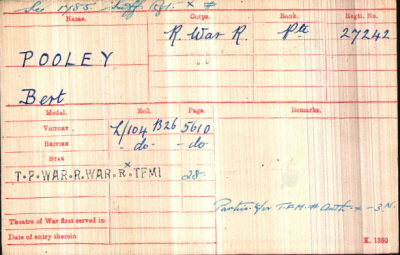 See 1755
Name. Corps. Rank. Regtl. No.
POOLEY R. War R. Pte 27242
Bert
Medal. Roll. Page. Remarks.
VICTORY L/104 B26 5610
BRITISH - do - - do -
STAR
T·F·WAR·R.WAR·R×TFMI 28
Theatre of War first served in
Date of entry therein K. 1380